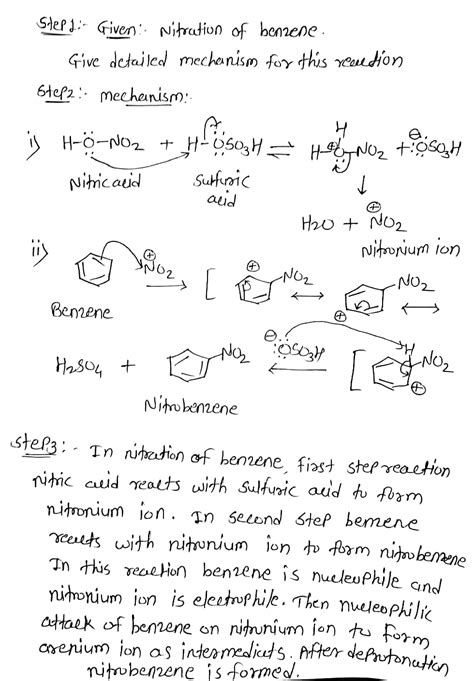 Step1:- Given:- Nitration of benzene.
Give detailed mechanism for this reaction
Step2:- mechanism:-
i) H-Ö-NO2 + H-ÖSO3H ⇌ H-O-NO2 + ⊖:ÖSO3H
H
⊕
Nitric acid Sulfuric acid
↓
H2O + ⊕NO2
Nitronium ion
ii) ⊕NO2 → [ ⊕ NO2 ↔ ⊕ NO2 ↔
Benzene
H2SO4 + NO2 ← ⊖:ÖSO3H [ H NO2 ⊕
Nitrobenzene
Step3:- In nitration of benzene, first step reaction
nitric acid reacts with sulfuric acid to form
nitronium ion. In second step benzene
reacts with nitronium ion to form nitrobenzene
In this reaction benzene is nucleophile and
nitronium ion is electrophile. Then nucleophilic
attack of benzene on nitronium ion to form
arenium ion as intermediats. After deprotonation
nitrobenzene is formed.